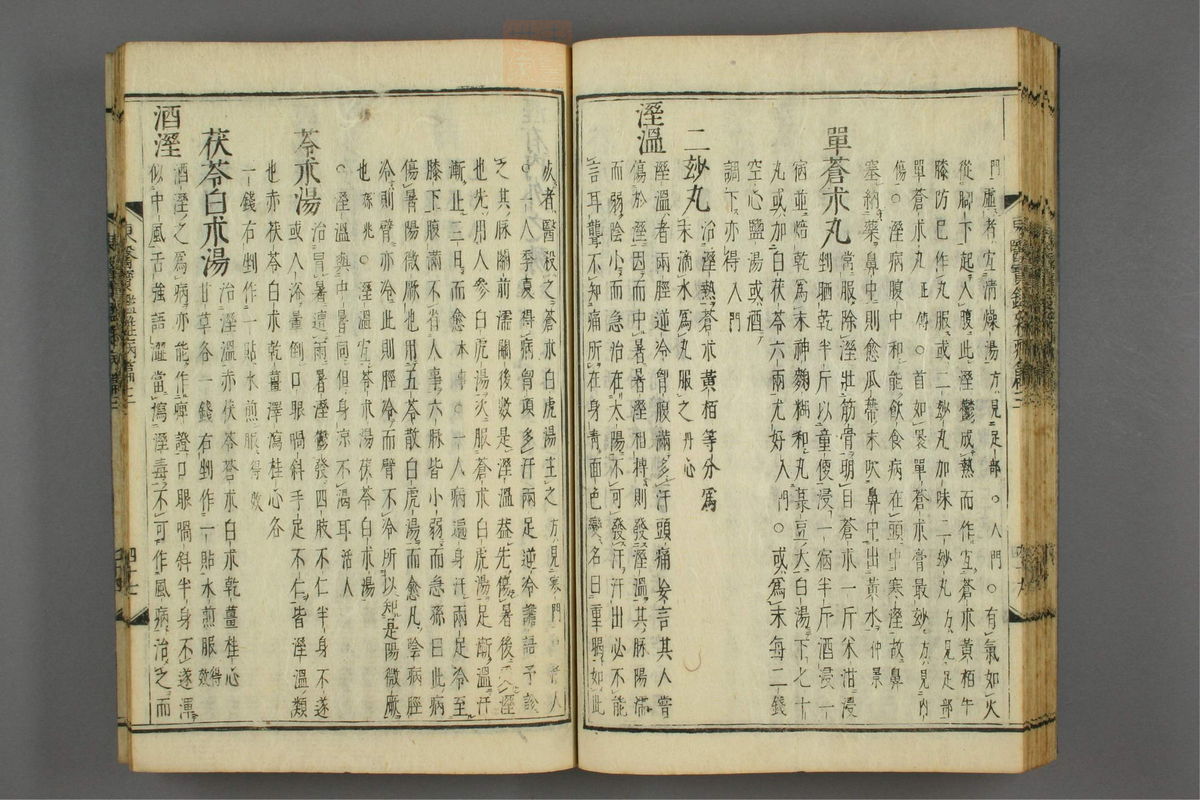 門虛者宜淸燥湯方見足部○入門○有氣如火
從脚下起入腹此濕鬱成熱而作宜蒼朮黃栢牛
膝防已作丸服或二妙丸加味二妙丸方見足部
單蒼朮丸正傳○首如裹單蒼朮膏最妙方見內
傷○濕病腹中和能飮食病在頭中寒濕故鼻
塞納藥鼻中則愈瓜蔕末吹鼻中出黃水仲景
單蒼朮丸 常服除濕壯筋骨明目蒼朮一斤米泔浸
宿剉晒乾半斤以童便浸一宿半斤酒浸一
宿並焙乾爲末神麴糊和丸菉豆大白湯下七十
丸或加白茯苓六兩尤好入門○或爲末每二錢
空心鹽湯或酒
調下亦得入門
二妙丸 治濕熱蒼朮黃栢等分爲
末滴水爲丸服之丹心
濕溫
濕溫者兩脛逆冷胷腹滿多汗頭痛妄言其人嘗
傷於濕因而中暑暑濕相搏則發濕溫其脉陽濡
而弱陰小而急治在太陽不可發汗汗出必不能
言耳聾不知痛所在身靑面色變名曰重暍如此
死者醫殺之蒼朮白虎湯主之方見寒門○活人
○一人季夏得病胷項多汗兩足逆冷譫語予診
之其脉關前濡關後數是濕溫蓋先傷暑後受濕
也先用人參白虎湯次服蒼朮白虎湯足漸溫汗
漸止三日而愈本事○一人病遍身汗兩足冷至
膝下腹滿不省人事六脉皆小弱而急孫曰此病
傷暑陽微厥也用五苓散白虎湯而愈凡陰病脛
冷則臂亦冷此則脛冷而臂不冷所以知是陽微厥
也孫兆○濕溫宜苓朮湯茯苓白朮湯
○濕溫與中暑同但身凉不渴耳活人
苓朮湯 治冒暑遭雨暑濕鬱發四肢不仁半身不遂
或入浴暈倒口眼喎斜手足不仁皆濕溫類
也赤茯苓白朮乾薑澤瀉桂心各
一錢右剉作一貼水煎服得效
茯苓白朮湯 治濕溫赤茯苓蒼朮白朮乾薑桂心
甘草各一錢右剉作一貼水煎服得效
酒濕
酒濕之爲病亦能作痺證口眼喎斜半身不遂渾
似中風舌強語澁當瀉濕毒不可作風病治之而